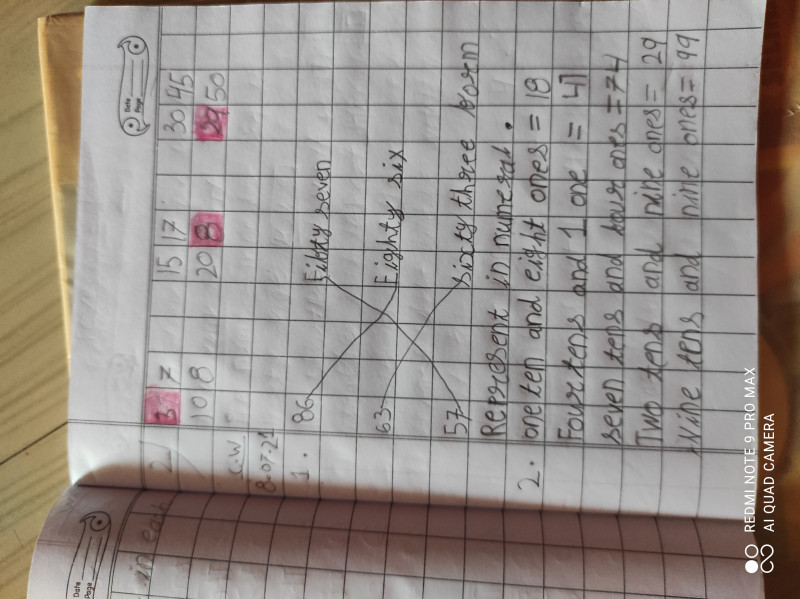 Date
Page
2) 3 7 15 17 30 45
10 8 20 8 29 50
C.W.
8-07-21
1. 86 Fifty seven
63 Eighty six
57 Sixty three
Represent in numeral. form
2. one ten and eight ones = 18
Four tens and 1 one = 41
seven tens and four ones = 74
Two tens and nine ones = 29
Nine tens and nine ones = 99
Date
Page
in each
REDMI NOTE 9 PRO MAX
AI QUAD CAMERA